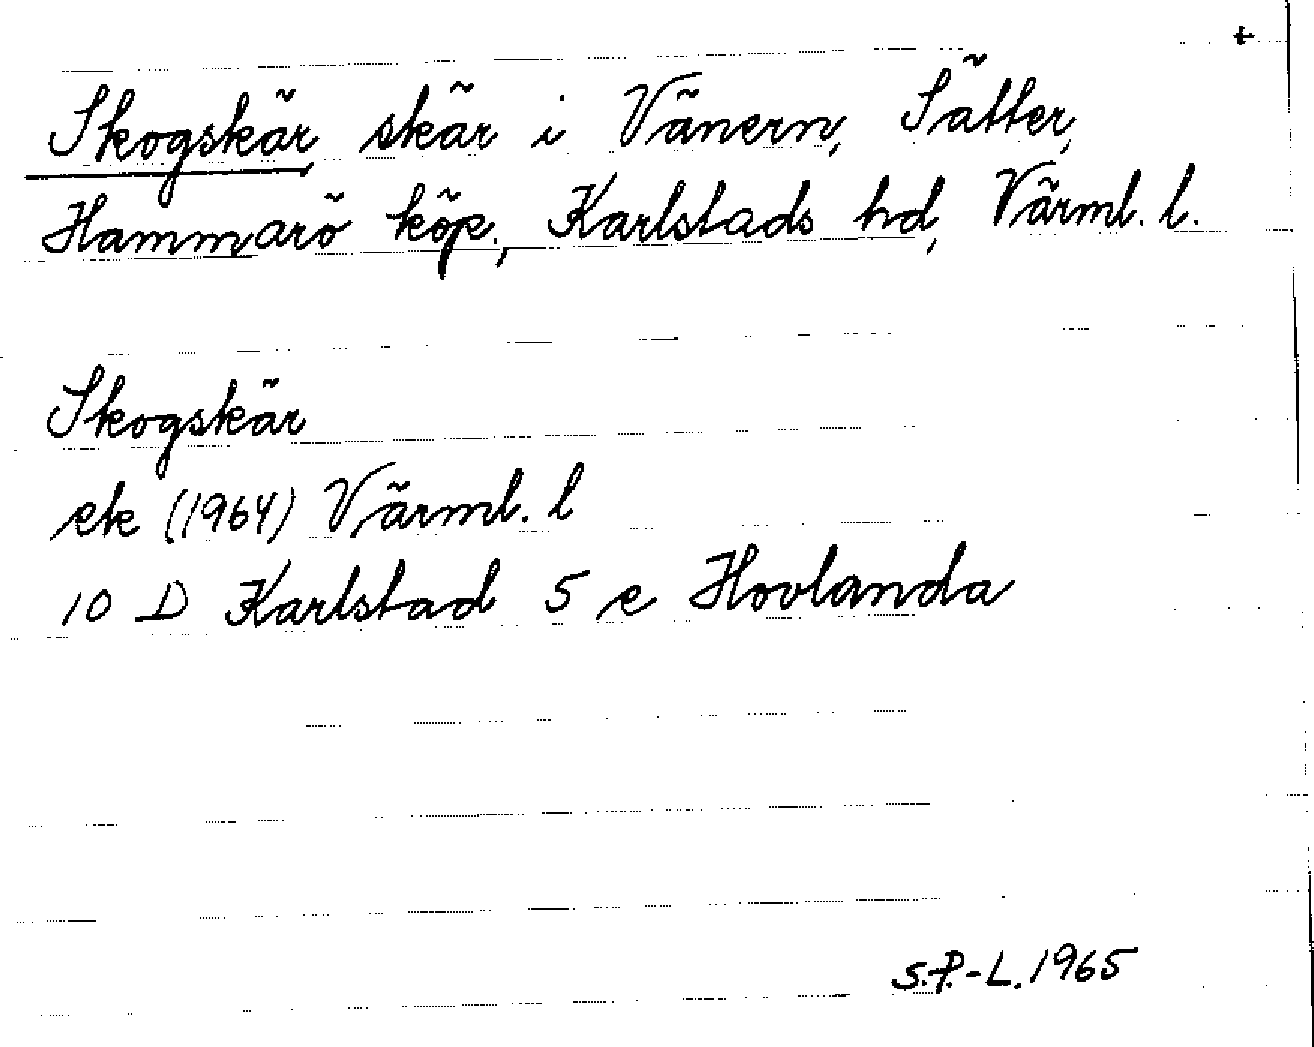 +
Skogskär, skär i Vänern, Sätter,
Hammarö köp., Karlstads hd, Värml. l.
Skogskär
ek (1964) Värml. l
10 D Karlstad 5 e Hovlanda
S.P.-L. 1965